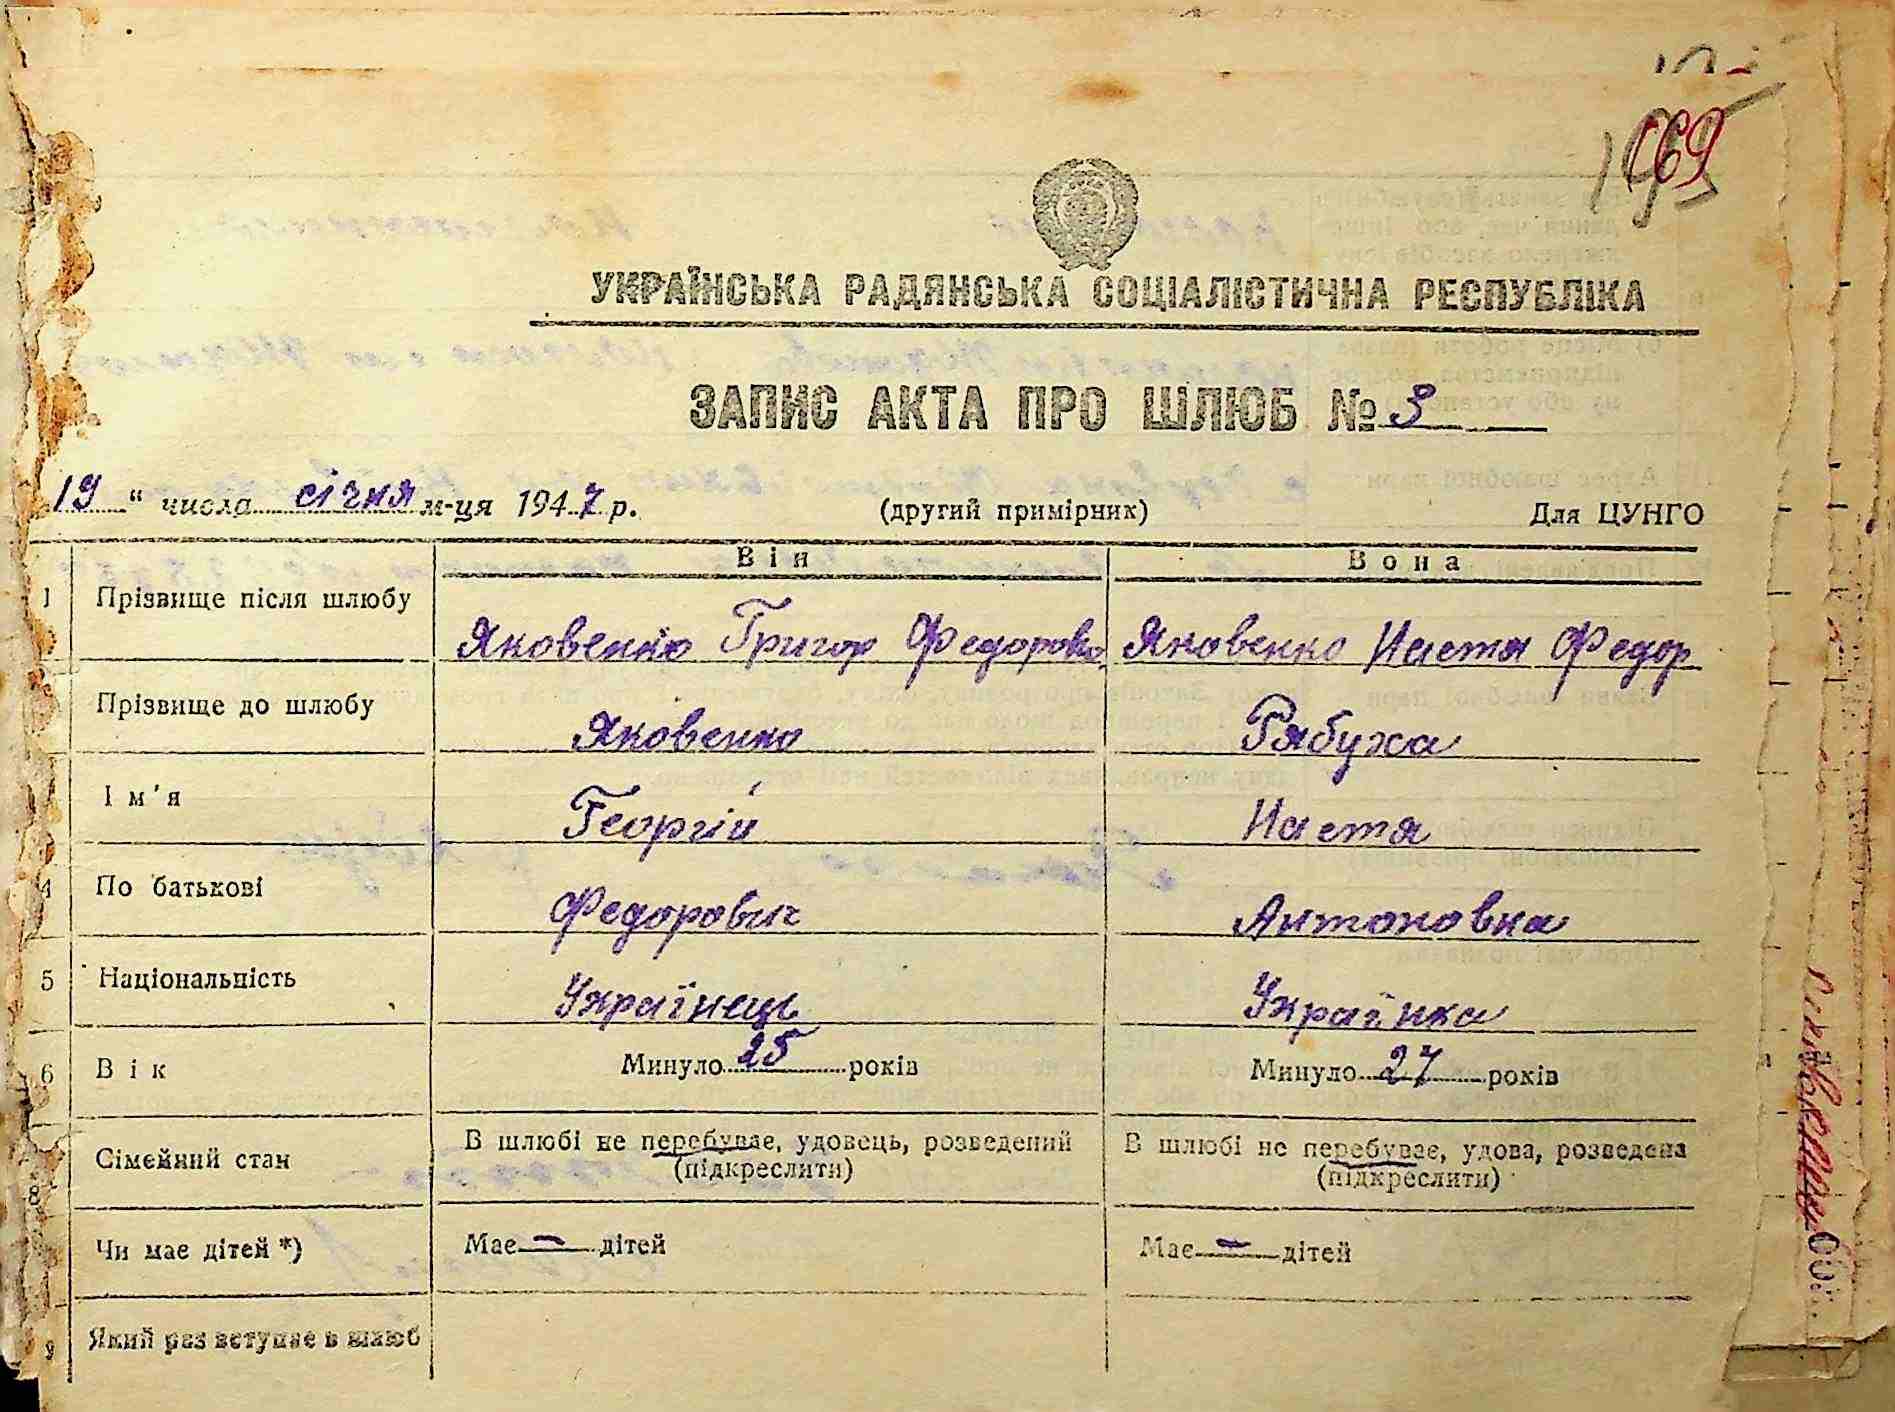 169
УКРАЇНСЬКА РАДЯНСЬКА СОЦІАЛІСТИЧНА РЕСПУБЛІКА
ЗАПИС АКТА ПРО ШЛЮБ № 3
19 " числа січня м-ця 1947 р. (другий примірник) Для ЦУНГО
Він Вона
1 Прізвище після шлюбу Яковенко Григор Федорович Яковенко Настя Федор
Прізвище до шлюбу Яковенко Рябуха
Ім'я Георгій Настя
4 По батькові Федорович Антоновна
5 Національність Українець Українка
6 Вік Минуло 25 років Минуло 27 років
Сімейний стан В шлюбі не перебуває, удовець, розведений В шлюбі не перебуває, удова, розведена
(підкреслити) (підкреслити)
8 Чи має дітей *) Має — дітей Має — дітей
9 Який раз вступає в шлюб